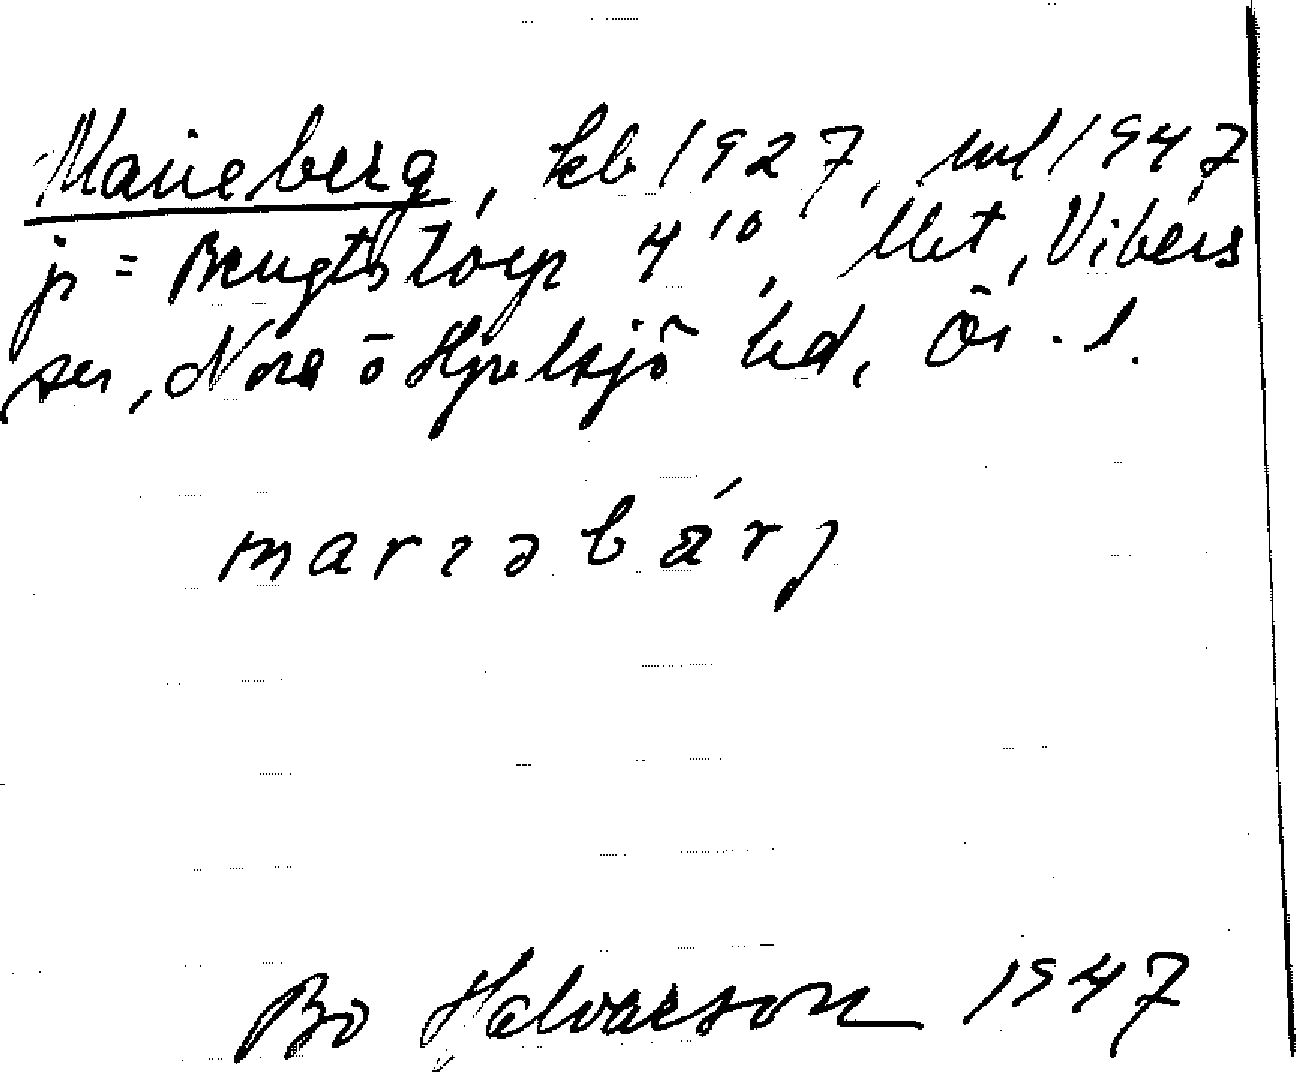 Marieberg, kb 1927, uml 1947
js = Bengtstorp 4¹⁰, Ubt, Vibers
sn, Nora o Hjulsjö hd, Ör. l.
mariəbärj
Bo Halvarson 1947